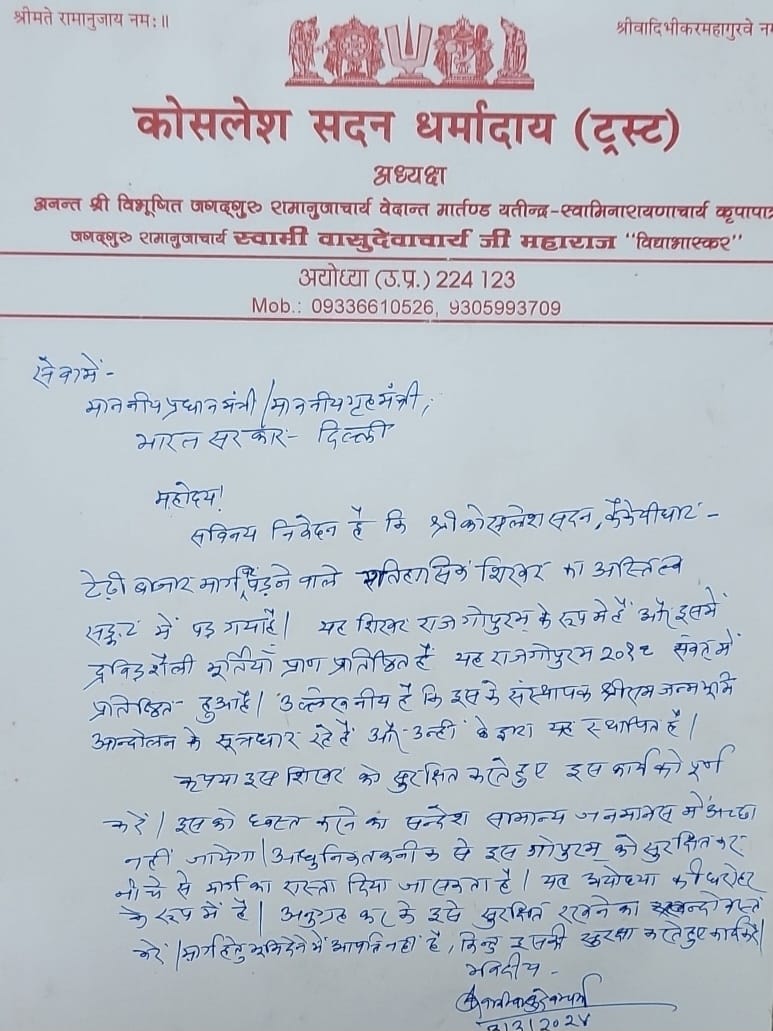 श्रीमते रामानुजाय नमः॥
श्रीवादिभीकरमहागुरवे नम
कोसलेश सदन धर्मादाय (ट्रस्ट)
अध्यक्ष
अनन्त श्री विभूषित जगद्गुरु रामानुजाचार्य वेदान्त मार्तण्ड यतीन्द्र-स्वामिनारायणाचार्य कृपापात्र
जगद्गुरु रामानुजाचार्य स्वामी वासुदेवाचार्य जी महाराज "विद्याभास्कर"
अयोध्या (उ.प्र.) 224 123
Mob.: 09336610526, 9305993709
सेवामें-
माननीय प्रधानमंत्री/माननीय गृहमंत्री,
भारत सरकार- दिल्ली
महोदय!
सविनय निवेदन है कि श्रीकोसलेश सदन, कैकेयीघाट -
टेढ़ी बाजार मार्ग में पड़ने वाले ऐतिहासिक शिखर का अस्तित्व
सङ्कट में पड़ गया है। यह शिखर राजगोपुरम् के रूप में है और इसमें
द्रविड़ शैली मूर्तियाँ प्राण प्रतिष्ठित हैं यह राजगोपुरम् संवत् में
प्रतिष्ठित- हुआ है। उल्लेखनीय है कि इसके संस्थापक श्रीराम जन्मभूमि
आन्दोलन के सूत्रधार रहे हैं और उन्हीं के द्वारा यह स्थापित है।
कृपया इस शिखर को सुरक्षित करते हुए इस कार्य को पूर्ण
करें। इसको ध्वस्त करने का सन्देश सामान्य जनमानस में अच्छा
नहीं जायेगा। आधुनिक तकनीक से इस गोपुरम् को सुरक्षित कर
नीचे से मार्ग का रास्ता दिया जा सकता है। यह अयोध्या की धरोहर
के रूप में है। अनुग्रह कर के इसे सुरक्षित रखने का बन्दोबस्त
करें। मार्ग हेतु भूमि देने में आपत्ति नहीं है, किन्तु इसकी सुरक्षा करते हुए कार्य करें।
भवदीय -